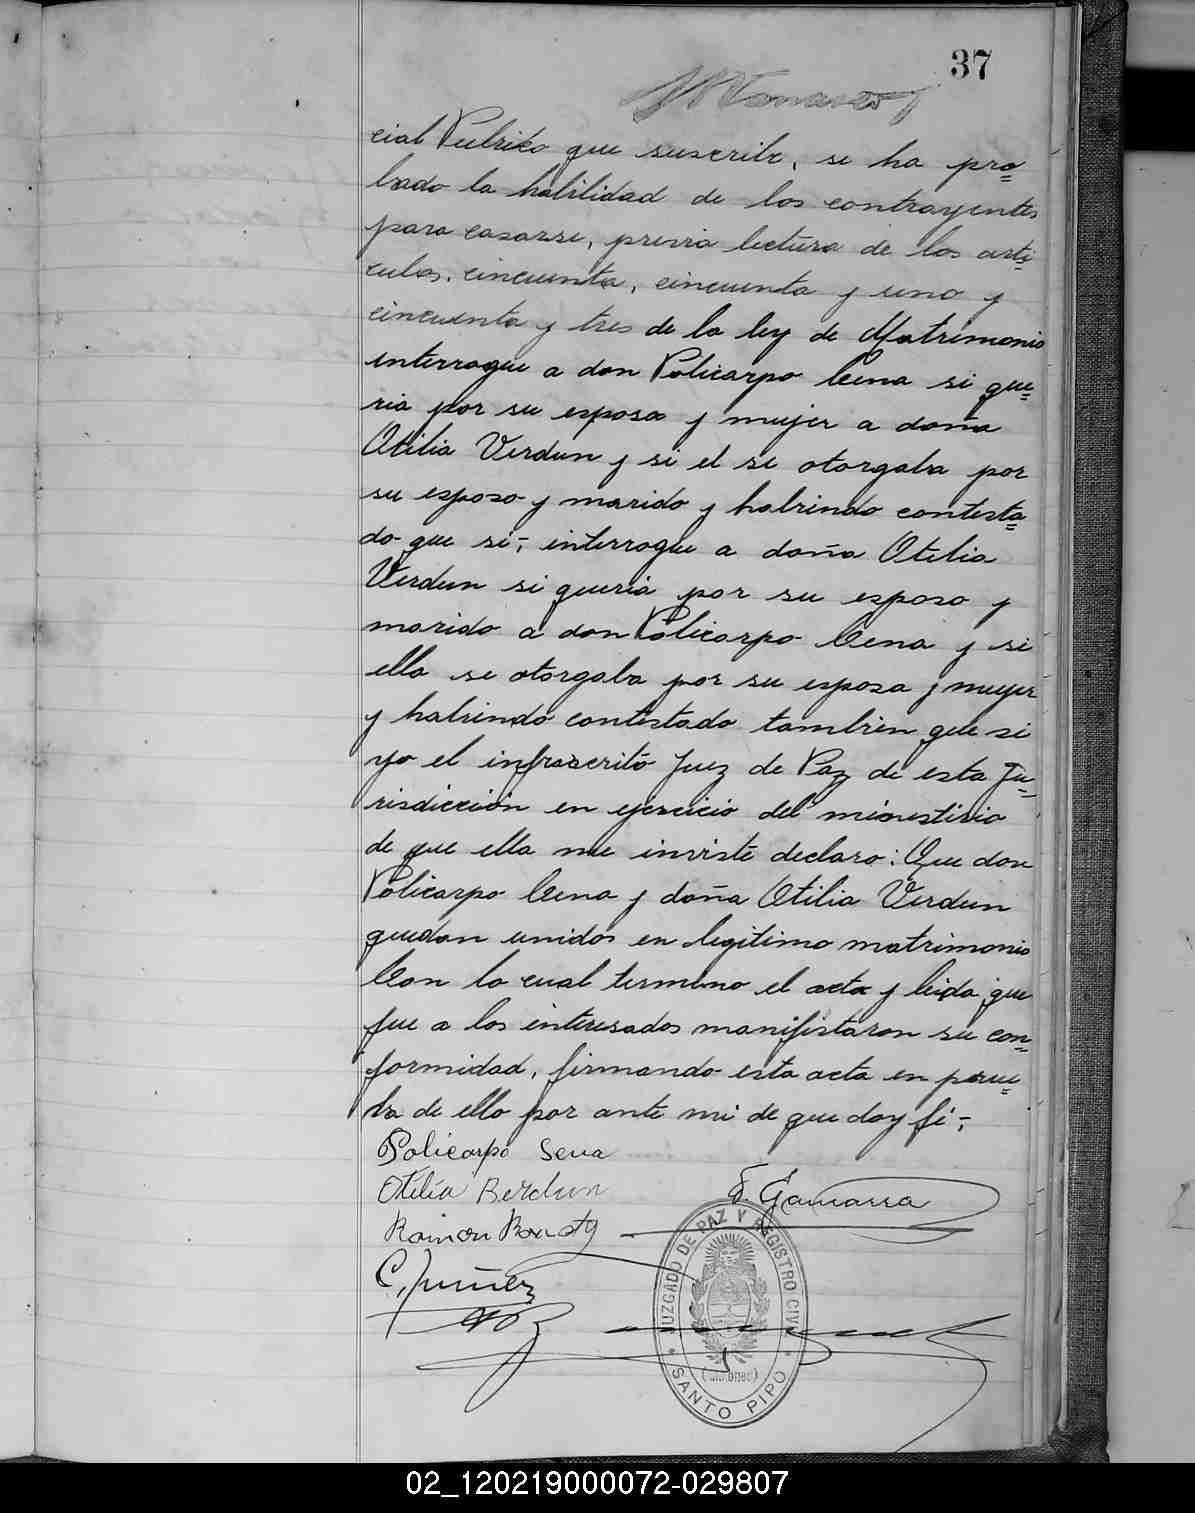 37
cial Publico que suscribe, se ha pro=
bado la habilidad de los contrayentes
para casarse, previa lectura de los arti=
culos, cincuenta, cincuenta y uno y
cincuenta y tres de la ley de Matrimonio
interrogue a don Policarpo Cena si que=
ria por su esposa y mujer a doña
Otilia Verdun y si el se otorgaba por
su esposo y marido y habiendo contesta=
do que si-, interrogue a doña Otilia
Verdun si queria por su esposo y
marido a don Policarpo Cena y si
ella se otorgaba por su esposa y mujer
y habiendo contestado tambien que si
yo el infrascrito Juez de Paz de esta Ju=
risdicción en ejercicio del ministerio
de que ella me inviste declaro: Que don
Policarpo Cena y doña Otilia Verdun
quedan unidos en legitimo matrimonio
Con lo cual termino el acta y leida que
fue a los interesados manifestaron su con=
formidad, firmando esta acta en prue=
ba de ello por ante mi de que doy fé-,
Policarpo Sena
Otilia Berdun
F. Gamarra
Ramon
C. Nuñez
JUZGADO DE PAZ Y REGISTRO CIVIL
(Misiones)
SANTO PIPO
02_120219000072-029807